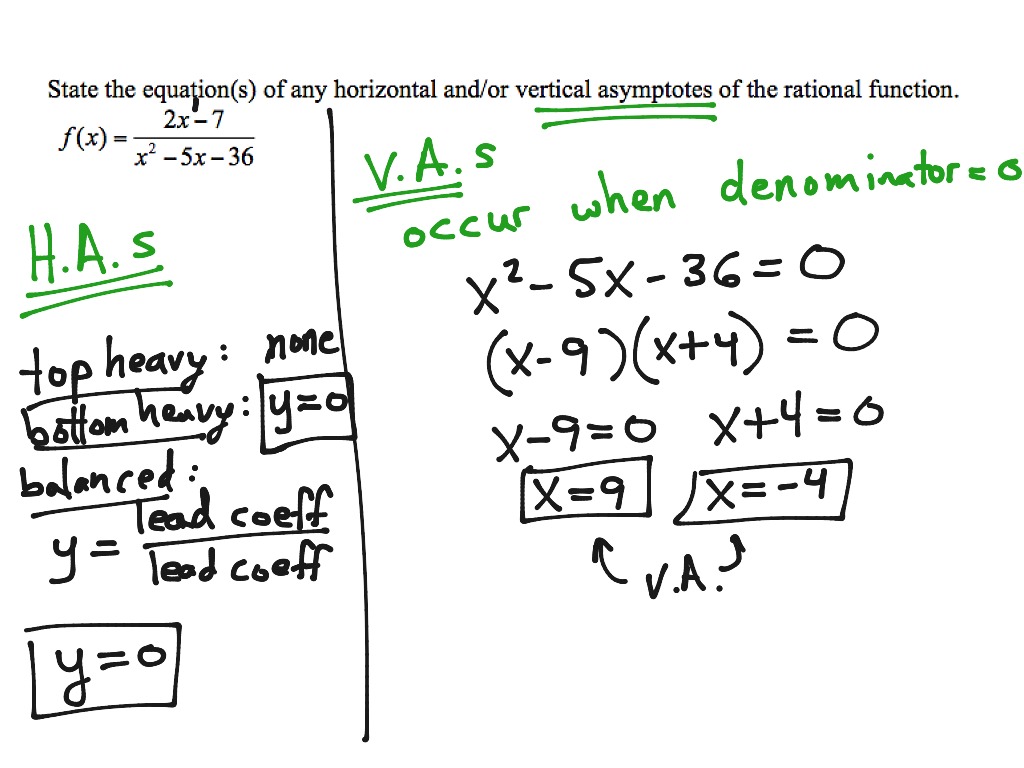 State the equation(s) of any horizontal and/or vertical asymptotes of the rational function.
f(x) = (2x¹ – 7)/(x² – 5x – 36)
H.A.s
top heavy: none
bottom heavy: y=0
balanced:
y = lead coeff/lead coeff
y=0
V.A.s
occur when denominator = 0
x² – 5x – 36 = 0
(x–9)(x+4) = 0
x–9=0 x+4=0
x=9 x=–4
V.A.